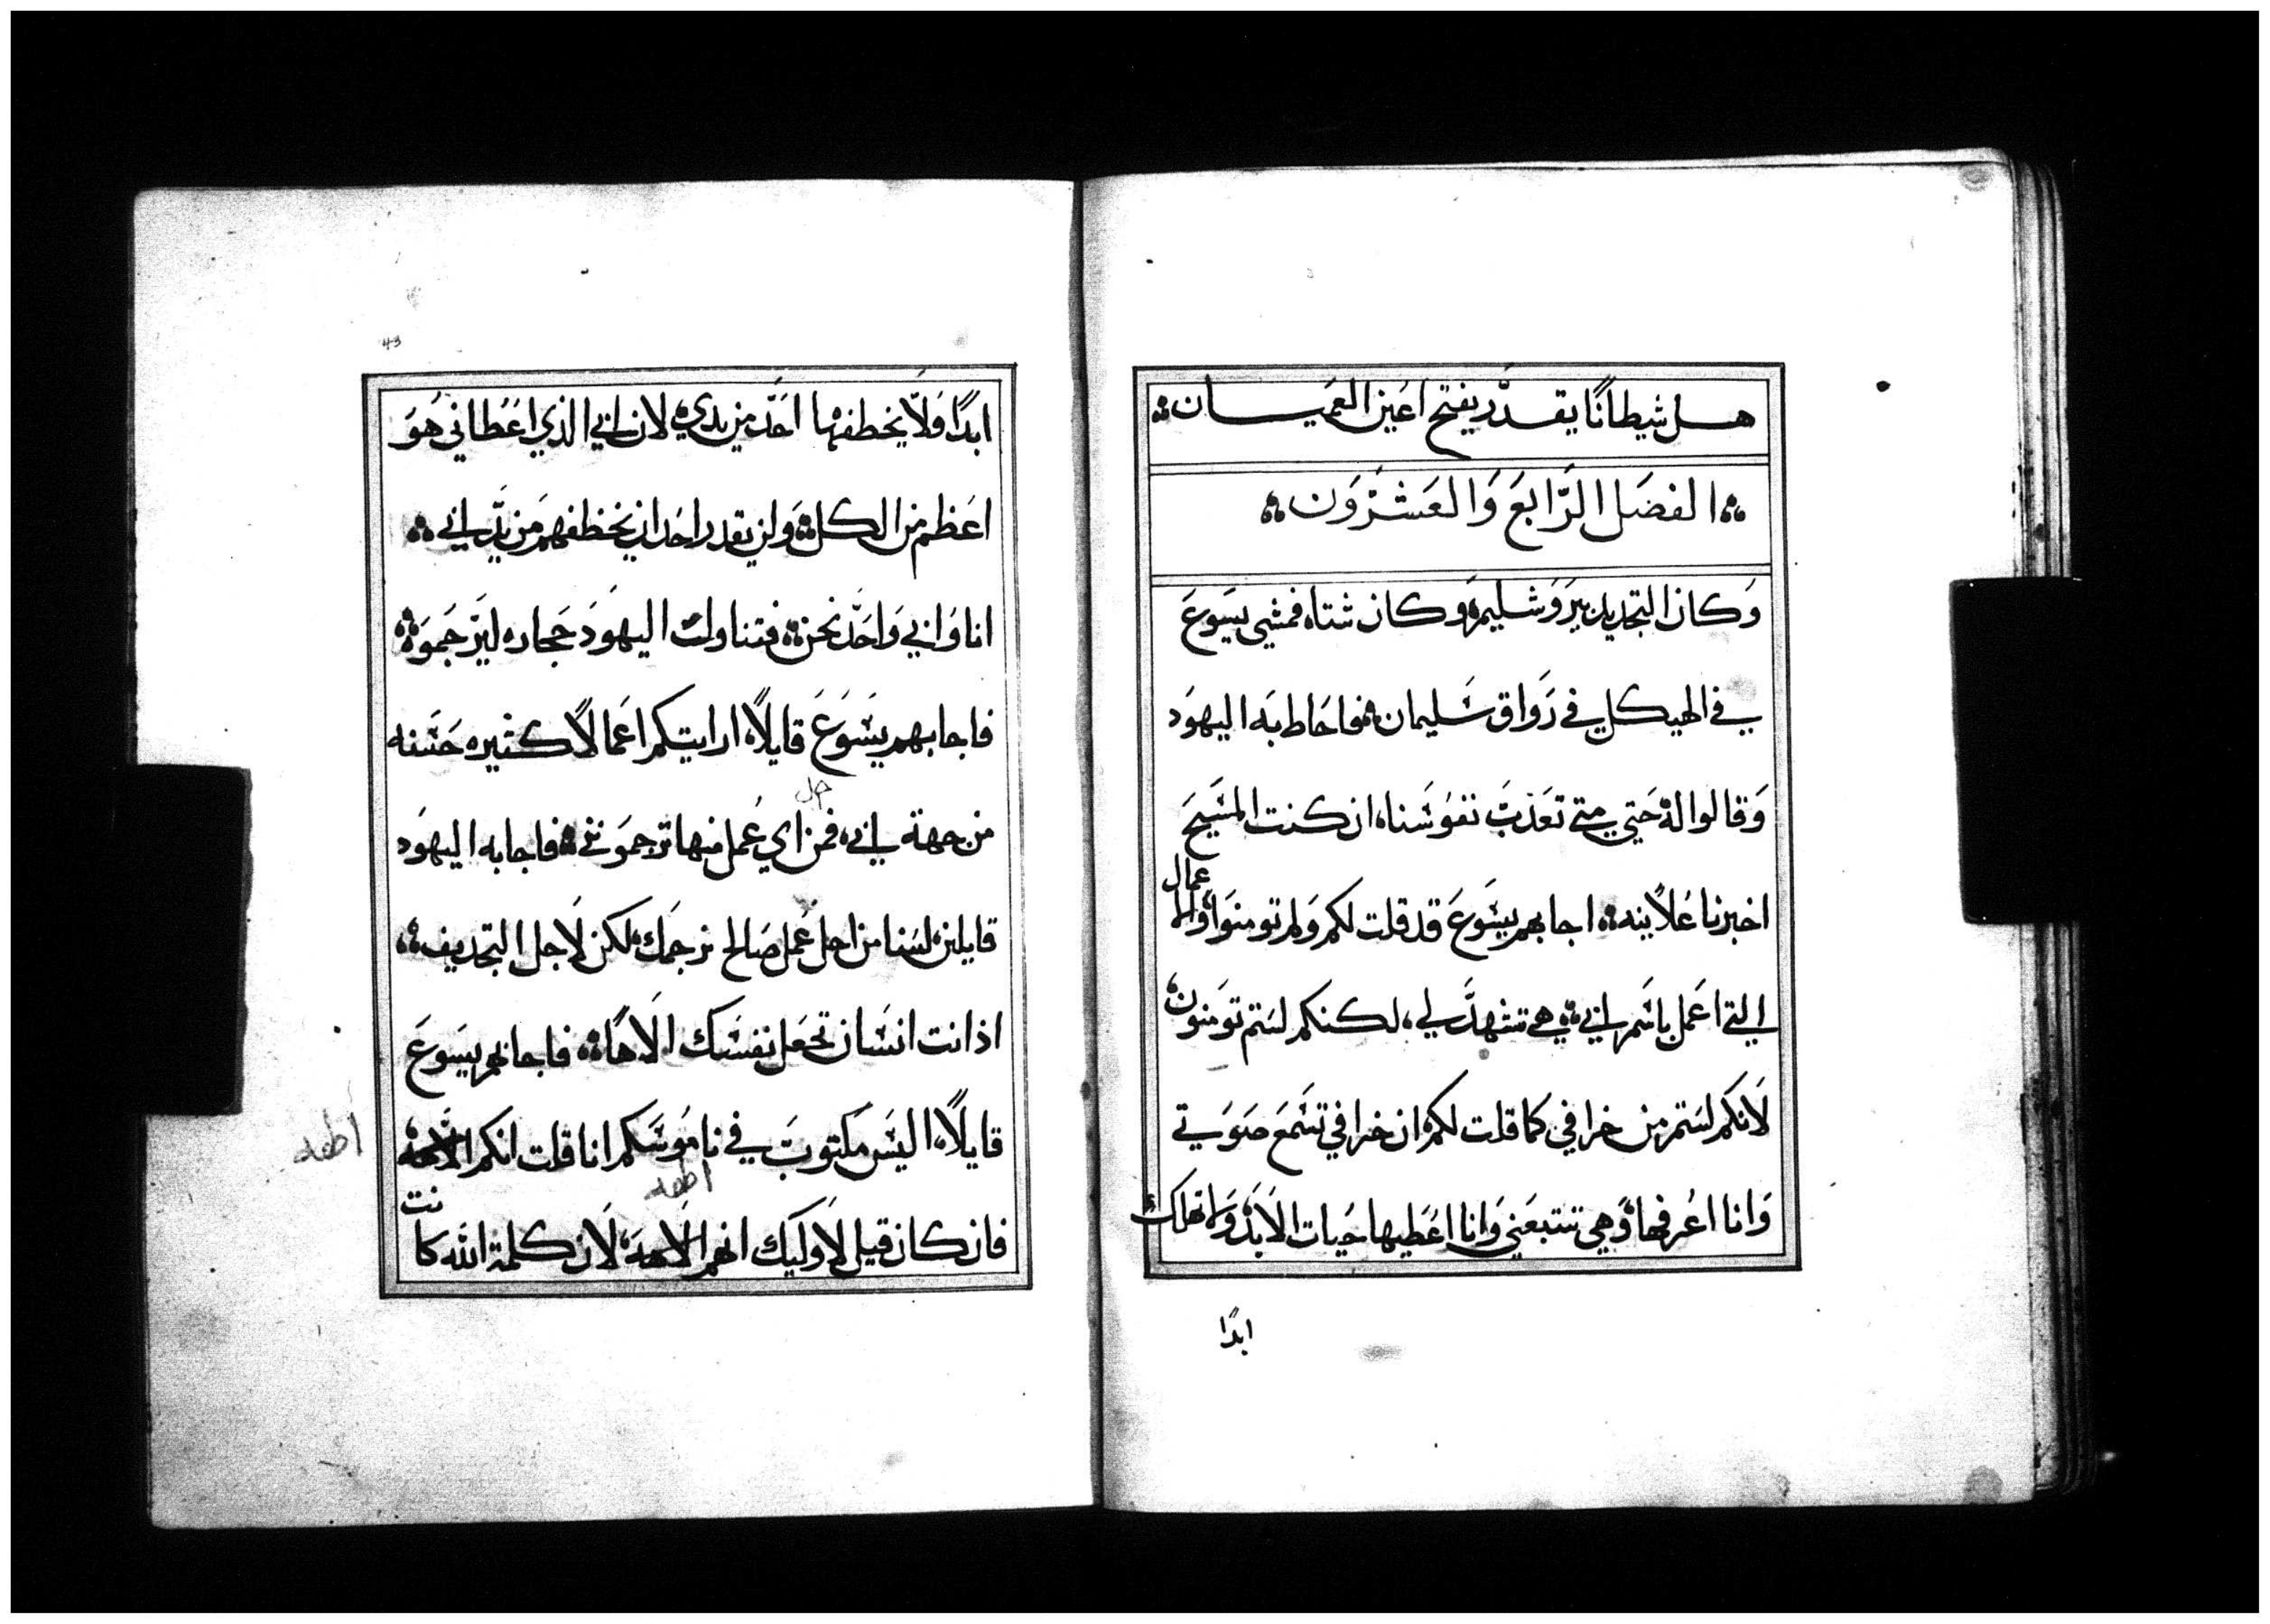 هل شيطانًا يقدر يفتح اعين العميان
الفصل الرابع والعشرون
وكان التجديد بيروشليم وكان شتاه فمشي يسوع
في الهيكل في رواق سليمان فاحاط به اليهود
وقالوا له حتي متي تعذب نفوسنا ان كنت المسيح
اخبرنا علانيه اجابهم يسوع قد قلت لكم ولم تومنوا والا
عمال
التي اعمل باسم ابي هي تشهد لي لكنكم لستم تومنون
لانكم لستم من خرافي كما قلت لكم ان خرافي تسمع صوتي
وانا اعرفها وهي تتبعني وانا اعطيها حيات الابد ولا تهلك
ابدًا
43
ابدًا ولا يخطفها احد من يدي لان ابي الذي اعطاني هو
اعظم من الكل ولن يقدر احد ان يخطفهم من يد ابي
انا وابي واحد نحن فتناولت اليهود حجاره ليرجموه
فاجابهم يسوع قايلاً اراتيتكم اعمالاً كثيره حسنه
من جهة ابي فمن اي عمل منها ترجموني فاجابه اليهود
قايلين لسنا من اجل عمل صالح نرجمك لكن لاجل التجديف
اذ انت انسان تجعل نفسك الاهًا فاجابهم يسوع
قايلاً اليس مكتوب في ناموسكم انا قلت انكم الاهه
فان كان قيل لاوليك انهم الاهه لان كلمة الله كا
نت